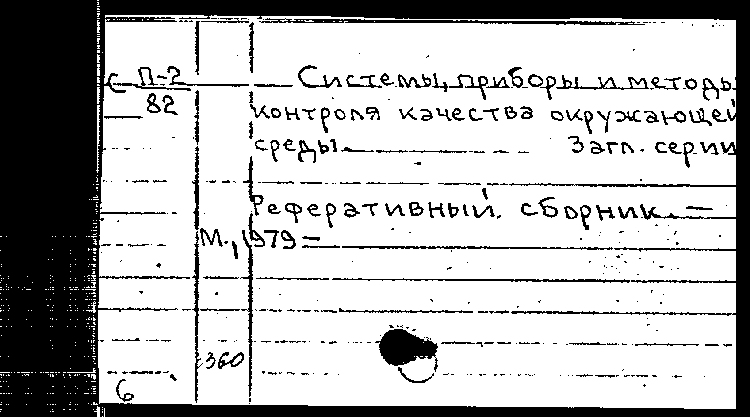 С П-2 Системы, приборы и методы
82 контроля качества окружающей
среды. Загл. серии
Реферативный сборник. —
М., 1979 —
360
6